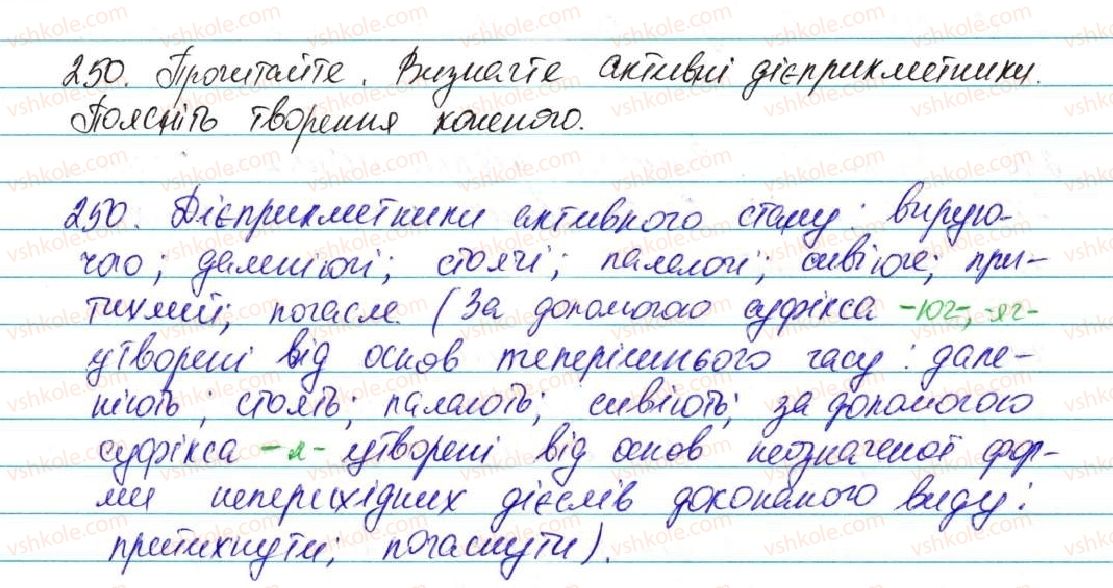 250. Прочитайте. Визначте активні дієприкметники.
Поясніть творення кожного.
250. Дієприкметники активного стану: вирую-
чого; даленіючі; стоячі; палаючі; сивіюче; при-
тихлий; погасле. (За допомогою суфікса -юч-, -яч-
утворені від основ теперішнього часу: дале-
ніють; стоять; палають; сивіють; за допомогою
суфікса -л- утворені від основ неозначеної фор-
ми неперехідних дієслів доконаного виду:
притихнути; погаснути).